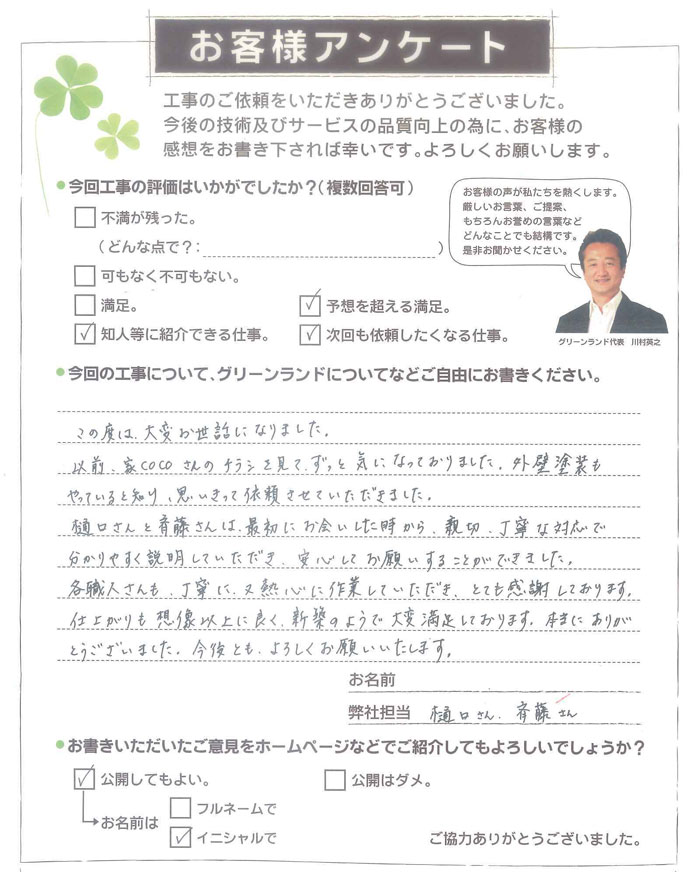 お客様アンケート
工事のご依頼をいただきありがとうございました。
今後の技術及びサービスの品質向上の為に、お客様の
感想をお書き下されば幸いです。よろしくお願いします。
今回工事の評価はいかがでしたか?(複数回答可)
不満が残った。
(どんな点で?: )
可もなく不可もない。
満足。
予想を超える満足。
知人等に紹介できる仕事。
次回も依頼したくなる仕事。
お客様の声が私たちを熱くします。
厳しいお言葉、ご提案、
もちろんお誉めの言葉など
どんなことでも結構です。
是非お聞かせください。
グリーンランド代表 川村英之
今回の工事について、グリーンランドについてなどご自由にお書きください。
この度は、大変お世話になりました。
以前、家COCOさんのチラシを見て、ずっと気になっておりました。外壁塗装も
やっていると知り、思いきって依頼させていただきました。
樋口さんと斉藤さんは、最初にお会いした時から、親切、丁寧な対応で
分かりやすく説明していただき、安心してお願いすることができました。
各職人さんも、丁寧に、又熱心に作業していただき、とても感謝しております。
仕上がりも想像以上に良く、新築のようで大変満足しております。本当にありが
とうございました。今後とも、よろしくお願いいたします。
お名前
弊社担当 樋口さん、斉藤さん
お書きいただいたご意見をホームページなどでご紹介してもよろしいでしょうか?
公開してもよい。
公開はダメ。
お名前は
フルネームで
イニシャルで
ご協力ありがとうございました。